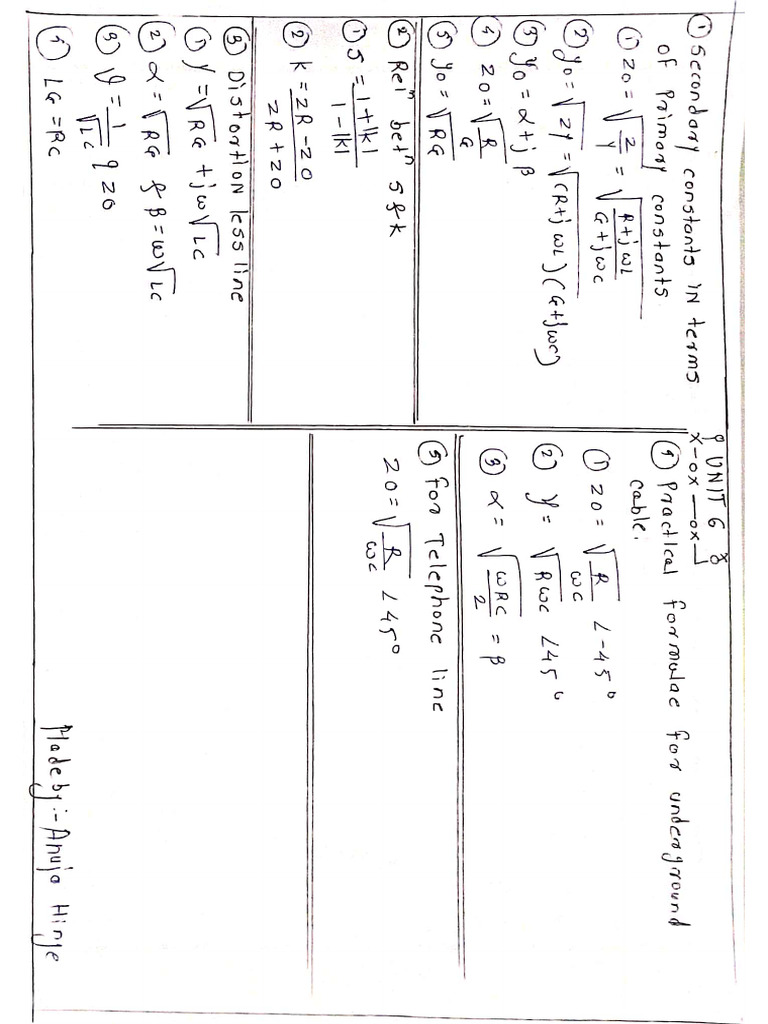 { UNIT 6 }
x-ox-ox-
① Secondary constants in terms
of Primary constants
① Z0 = √(Z/Y) = √((R+jωL)/(G+jωC))
② γ0 = √ZY = √(R+jωL)(G+jωC)
③ γ0 = α+jβ
④ Z0 = √(R/G)
⑤ γ0 = √RG
② Relⁿ betⁿ S & K
① S = (1+|K|)/(1-|K|)
② K = (ZR-Z0)/(ZR+Z0)
③ Distortion less line
① γ = √RG + jω√LC
② α = √RG & β = ω√LC
③ ϑ = 1/√LC & Z0
④ LG = RC
④ Practical formulae for underground
cable.
① Z0 = √(R/ωC) ∠-45°
② γ = √RωC ∠45°
③ α = √(ωRC/2) = β
⑤ for Telephone line
Z0 = √(R/ωC) ∠45°
Made by:- Anuja Hinge